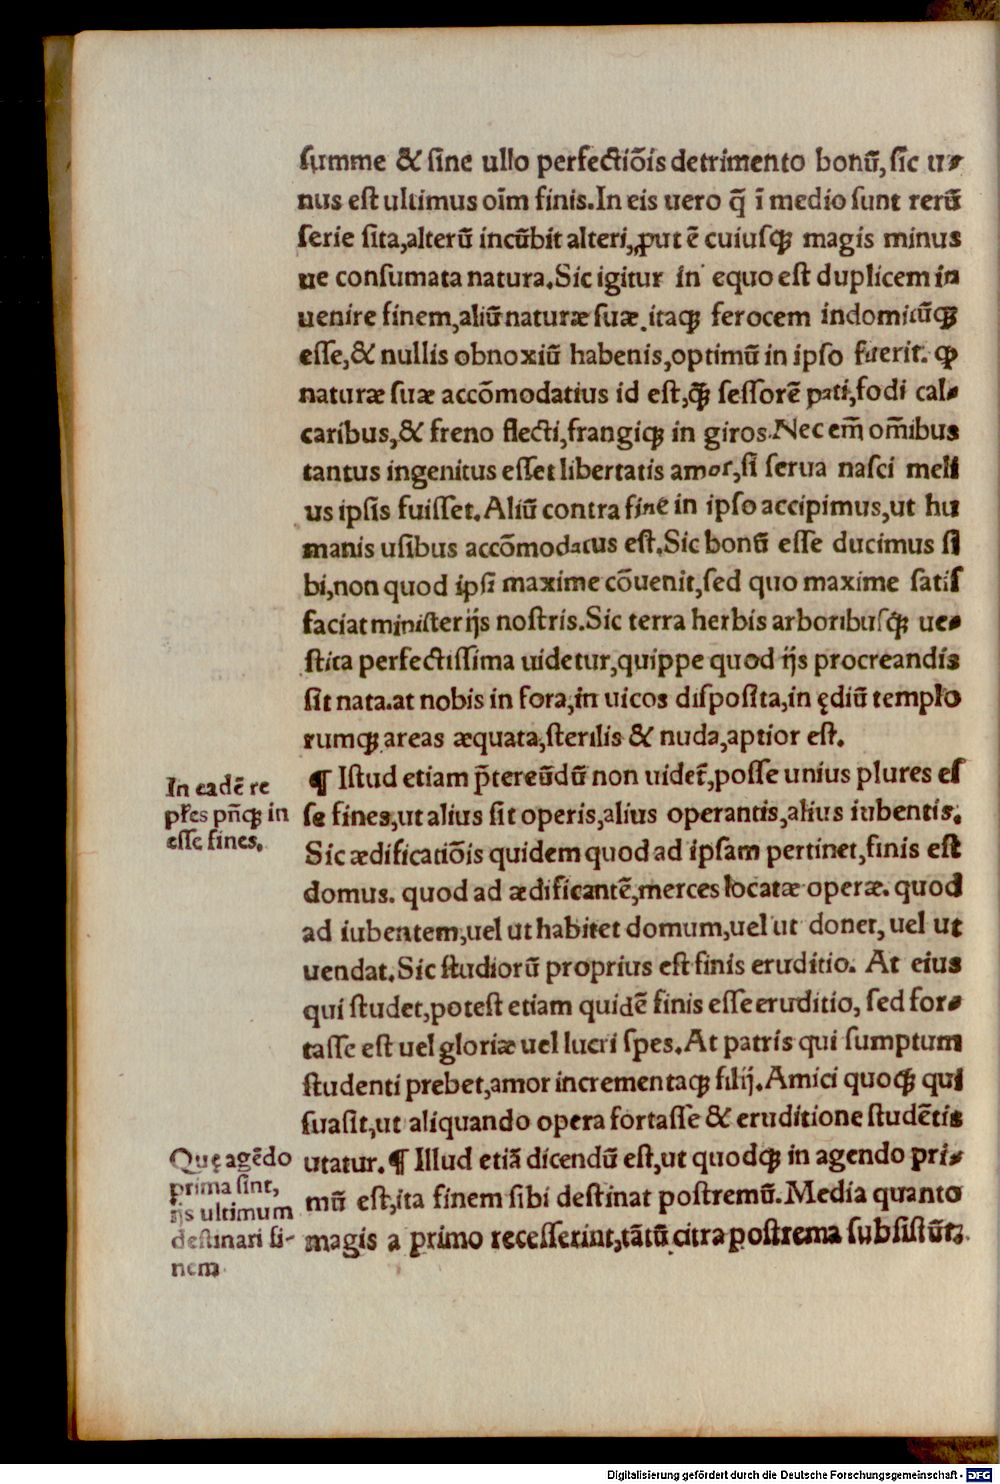 summe & sine ullo perfectiõis detrimento bonũ, sic u-
nus est ultimus oĩm finis. In eis uero q̃ ĩ medio sunt rerũ
serie sita, alterũ incũbit alteri, ꝓut ẽ cuiusꝗ magis minus
ue consumata natura. Sic igitur in equo est duplicem in
uenire finem, aliũ naturæ suæ. itaꝗ ferocem indomitũꝗ
esse, & nullis obnoxiũ habenis, optimũ in ipso fuerit. ꝙ
naturæ suæ accõmodatius id est, ꝙ̃ sessorẽ pati, fodi cal-
caribus, & freno flecti, frangiꝗ in giros. Nec em̃ om̃ibus
tantus ingenitus esset libertatis amor, si serua nasci meli
us ipsis fuisset. Aliũ contra finẽ in ipso accipimus, ut hu
manis usibus accõmodatus est. Sic bonũ esse ducimus si
bi, non quod ipsi maxime cõuenit, sed quo maxime satis
faciat ministerijs nostris. Sic terra herbis arboribusꝗ ue-
stita perfectissima uidetur, quippe quod ijs procreandis
sit nata. at nobis in fora, in uicos disposita, in ędiũ templo
rumꝗ areas æquata, sterilis & nuda, aptior est.
In eadẽ re
pl̃es pñꝗ in
esse fines.
¶ Istud etiam p̃tereũdũ non uidet᷑, posse unius plures es
se fines, ut alius sit operis, alius operantis, alius iubentis.
Sic ædificatiõis quidem quod ad ipsam pertinet, finis est
domus. quod ad ædificantẽ, merces locatæ operæ. quod
ad iubentem, uel ut habitet domum, uel ut donet, uel ut
uendat. Sic studiorũ proprius est finis eruditio. At eius
qui studet, potest etiam quidẽ finis esse eruditio, sed for-
tasse est uel gloriæ uel lucri spes. At patris qui sumptum
studenti prebet, amor incrementaꝗ filij. Amici quoꝗ qui
suasit, ut aliquando opera fortasse & eruditione studẽtis
Quę agẽdo
prima sint,
ijs ultimum
destinari fi-
nem.
utatur. ¶ Illud etiã dicendũ est, ut quodꝗ in agendo pri-
mũ est, ita finem sibi destinat postremũ. Media quanto
magis a primo recesserint, tãtũ citra postrema subsistũt.
Digitalisierung gefördert durch die Deutsche Forschungsgemeinschaft - DFG